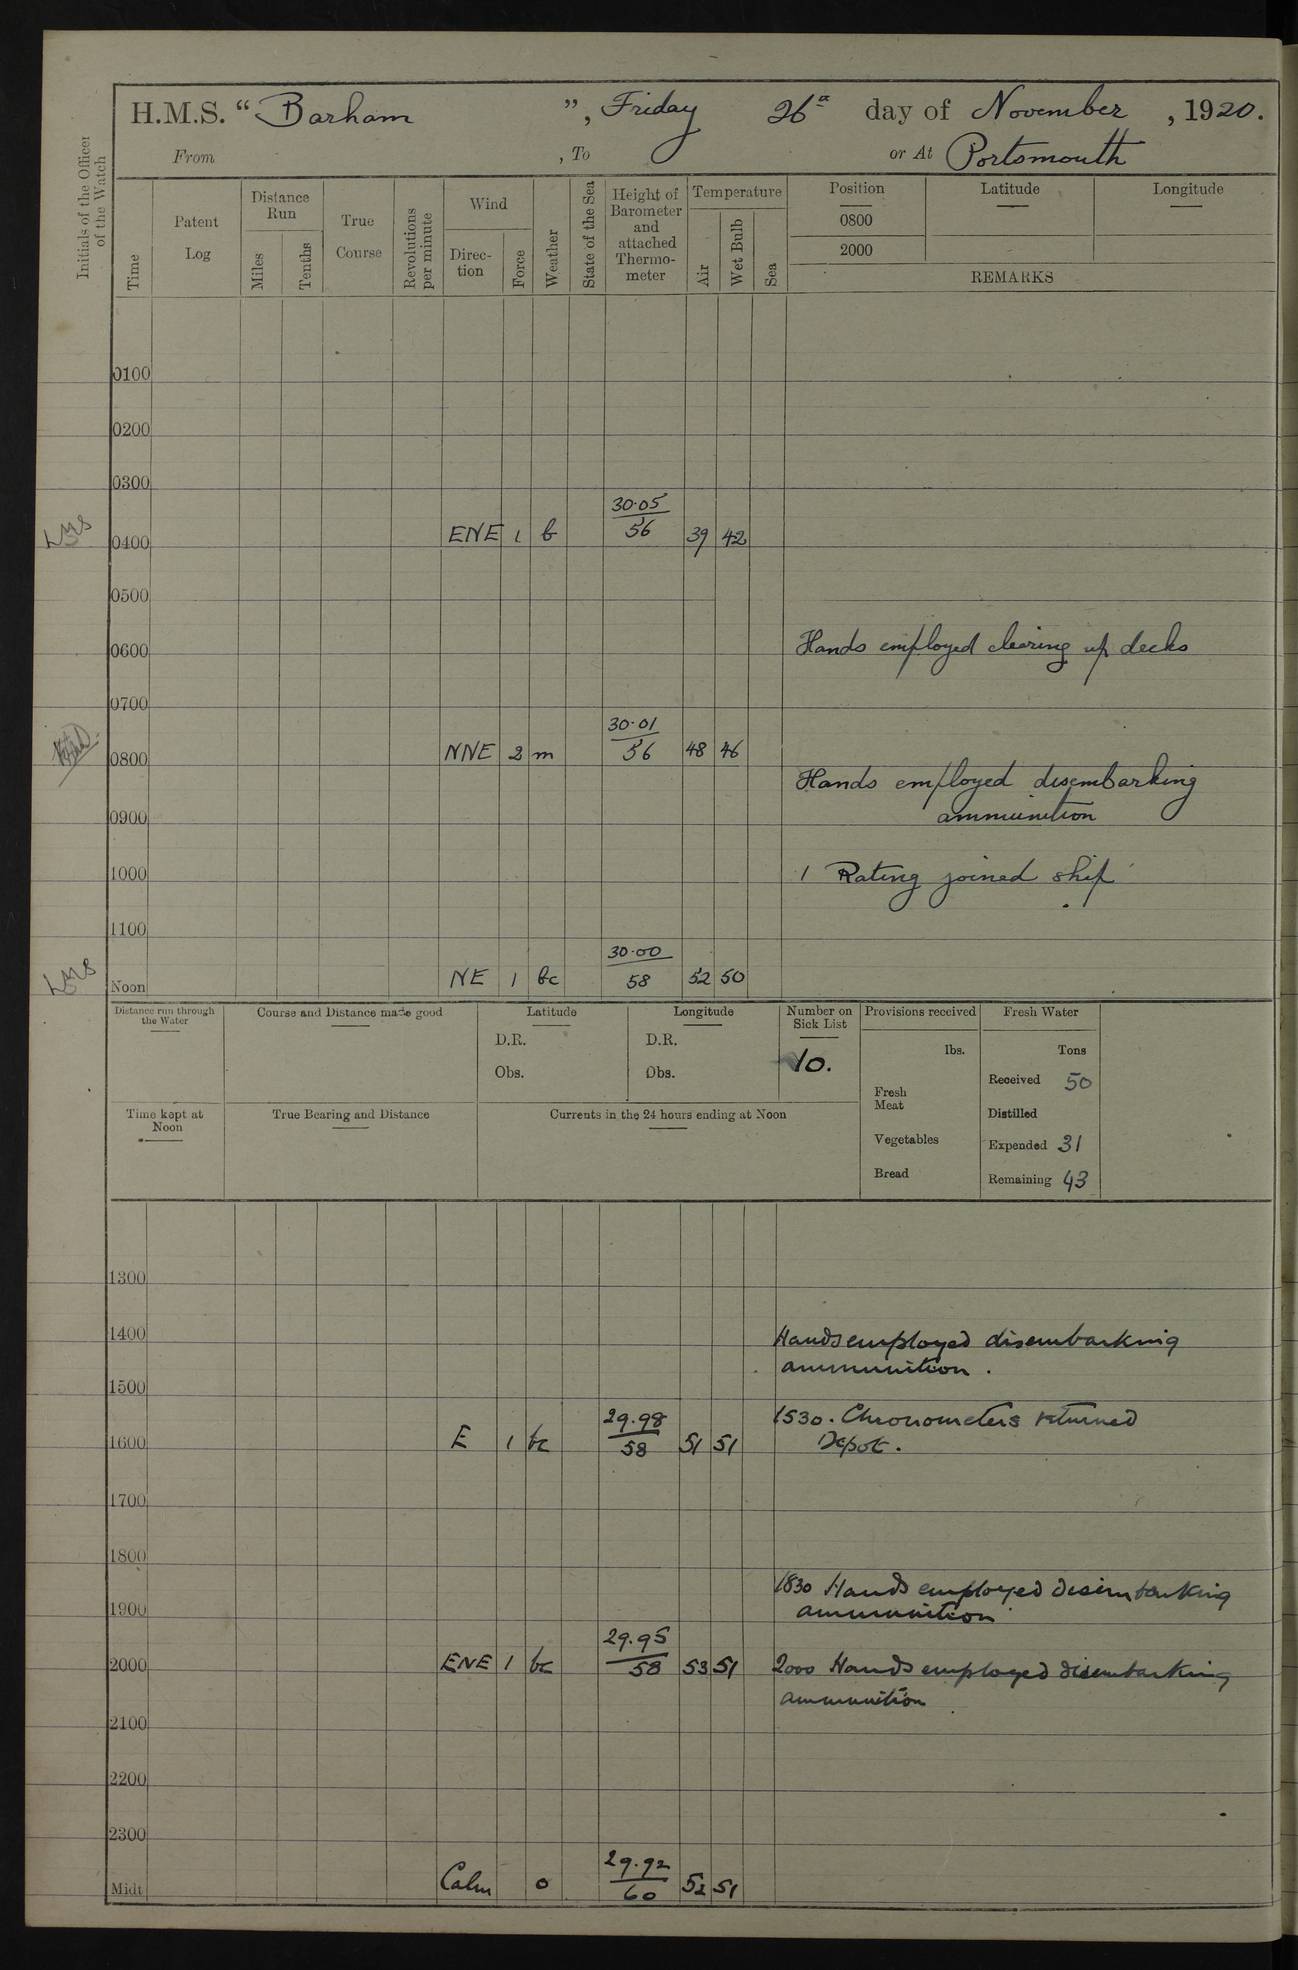 H.M.S. “Barham”, Friday 26th day of November, 1920.
From , To or At Portsmouth
Initials of the Officer of the Watch
Time
Patent Log
Distance Run
Miles
Tenths
True Course
Revolutions per minute
Wind
Direc-tion
Force
Weather
State of the Sea
Height of Barometer and attached Thermo-meter
Temperature
Air
Wet Bulb
Sea
Position Latitude Longitude
0800
2000
REMARKS
0100
0200
0300
0400 ENE 1 b 30·05/56 39 42
0500
0600 Hands employed clearing up decks
0700
0800 NNE 2 m 30·01/56 48 46
Hands employed disembarking
0900 ammunition
1000 1 Rating joined ship
1100
Noon NE 1 bc 30·00/58 52 50
Distance run through the Water
Course and Distance made good
Latitude
D.R.
Obs.
Longitude
D.R.
Obs.
Number on Sick List
10.
Provisions received
lbs.
Fresh Meat
Vegetables
Bread
Fresh Water
Tons
Received 50
Distilled
Expended 31
Remaining 43
Time kept at Noon
True Bearing and Distance
Currents in the 24 hours ending at Noon
1300
1400 Hands employed disembarking
ammunition.
1500
1530. Chronometers returned
1600 E 1 bc 29.98/58 51 51 Depot.
1700
1800
1830 Hands employed disembarking
1900 ammunition
2000 ENE 1 bc 29.95/58 53 51 2000 Hands employed disembarking
ammunition
2100
2200
2300
Midt Calm o 29.92/60 52 51